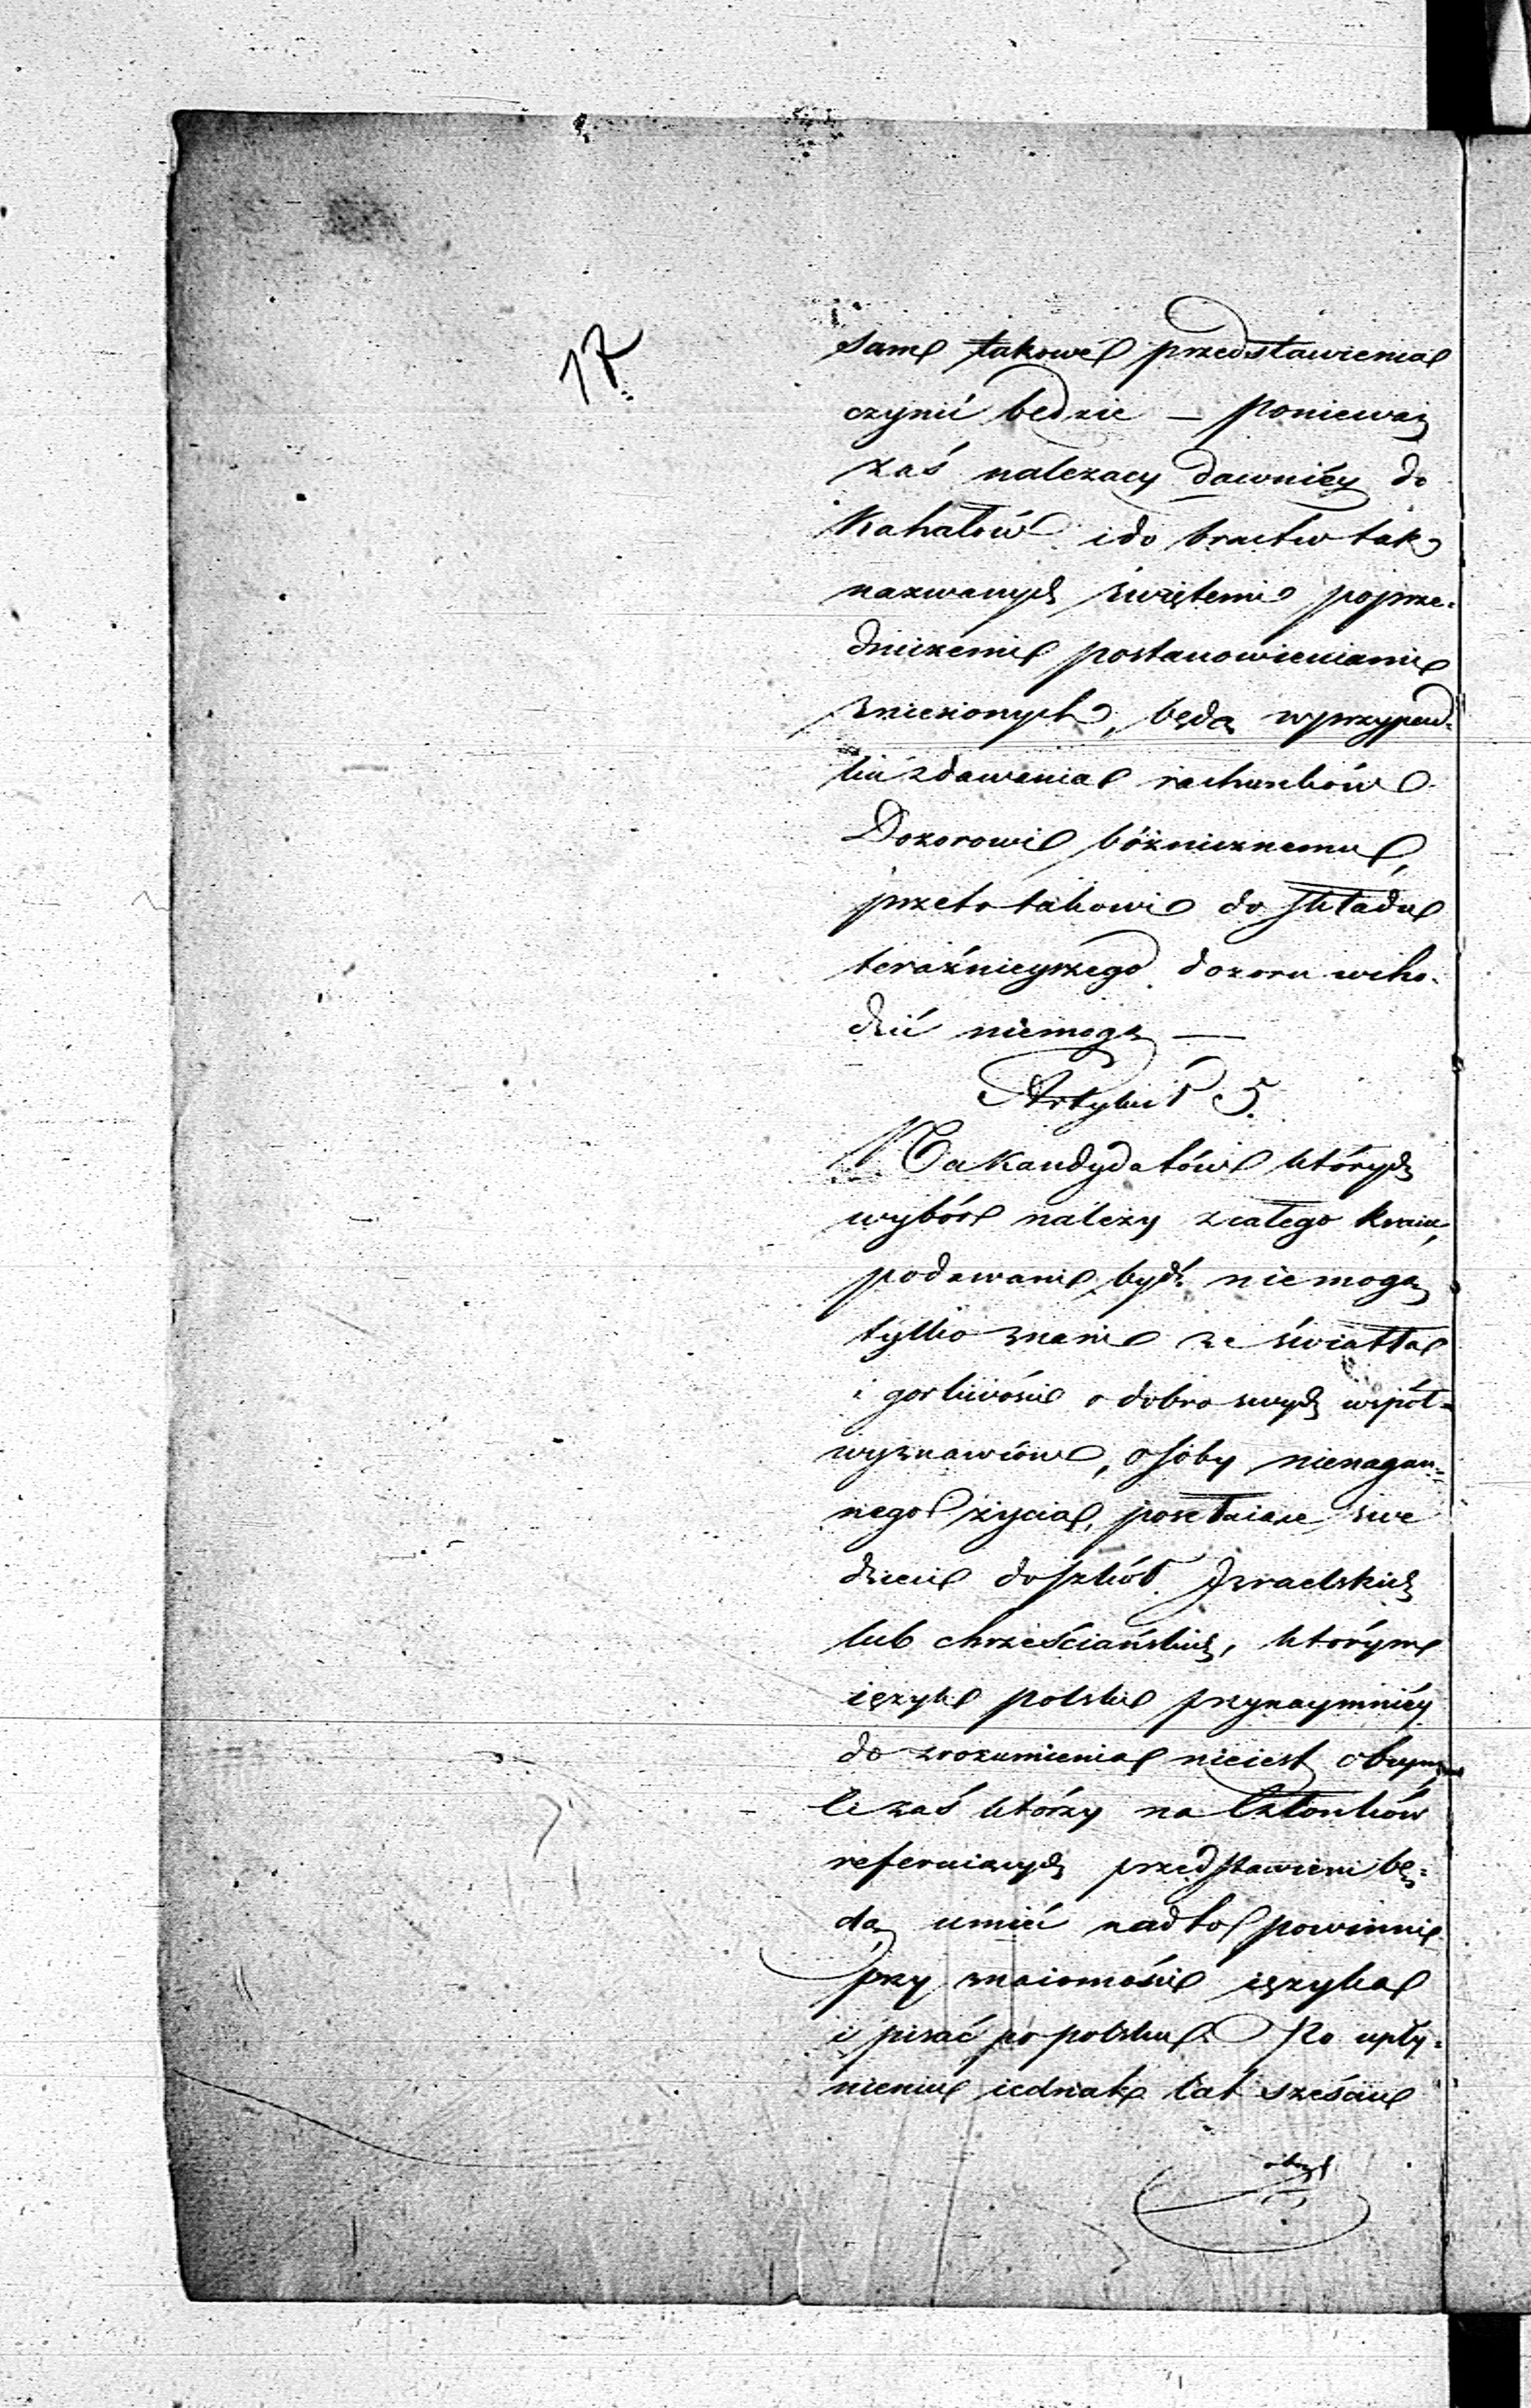 17
sam takowe przedstawienia
czynić będzie — Ponieważ
zaś należący dawniéy do
Kahałów i do bractw tak
nazwanych świętemi poprze-
dniczemi postanowieniami
zniesionych, będą w przypad-
ku zdawania rachunków
Dozorowi bóżnicznemu,
przeto takowi do składu
teraźnieyszego dozoru wcho-
dzić niemogą —
Artykuł 5.
Na Kandydatów których
wybór należy z całego kraiu,
podawani bydź niemogą
tylko znani ze światła
i gorliwości o dobro swych współ-
wyznawców, osoby nienagan-
nego życia, posełaiące swe
dzieci do szkół Izraelskich
lub chrześciańskich, którym
ięzyk polski przynaymniéy
do zrozumienia nieiest obcym,
Ci zaś którzy na Członków
referuiących przedstawieni bę-
dą, umieć nadto powinni
przy znaiomości ięzyka
i pisać po polsku Po upły-
nieniu iednak lat sześciu